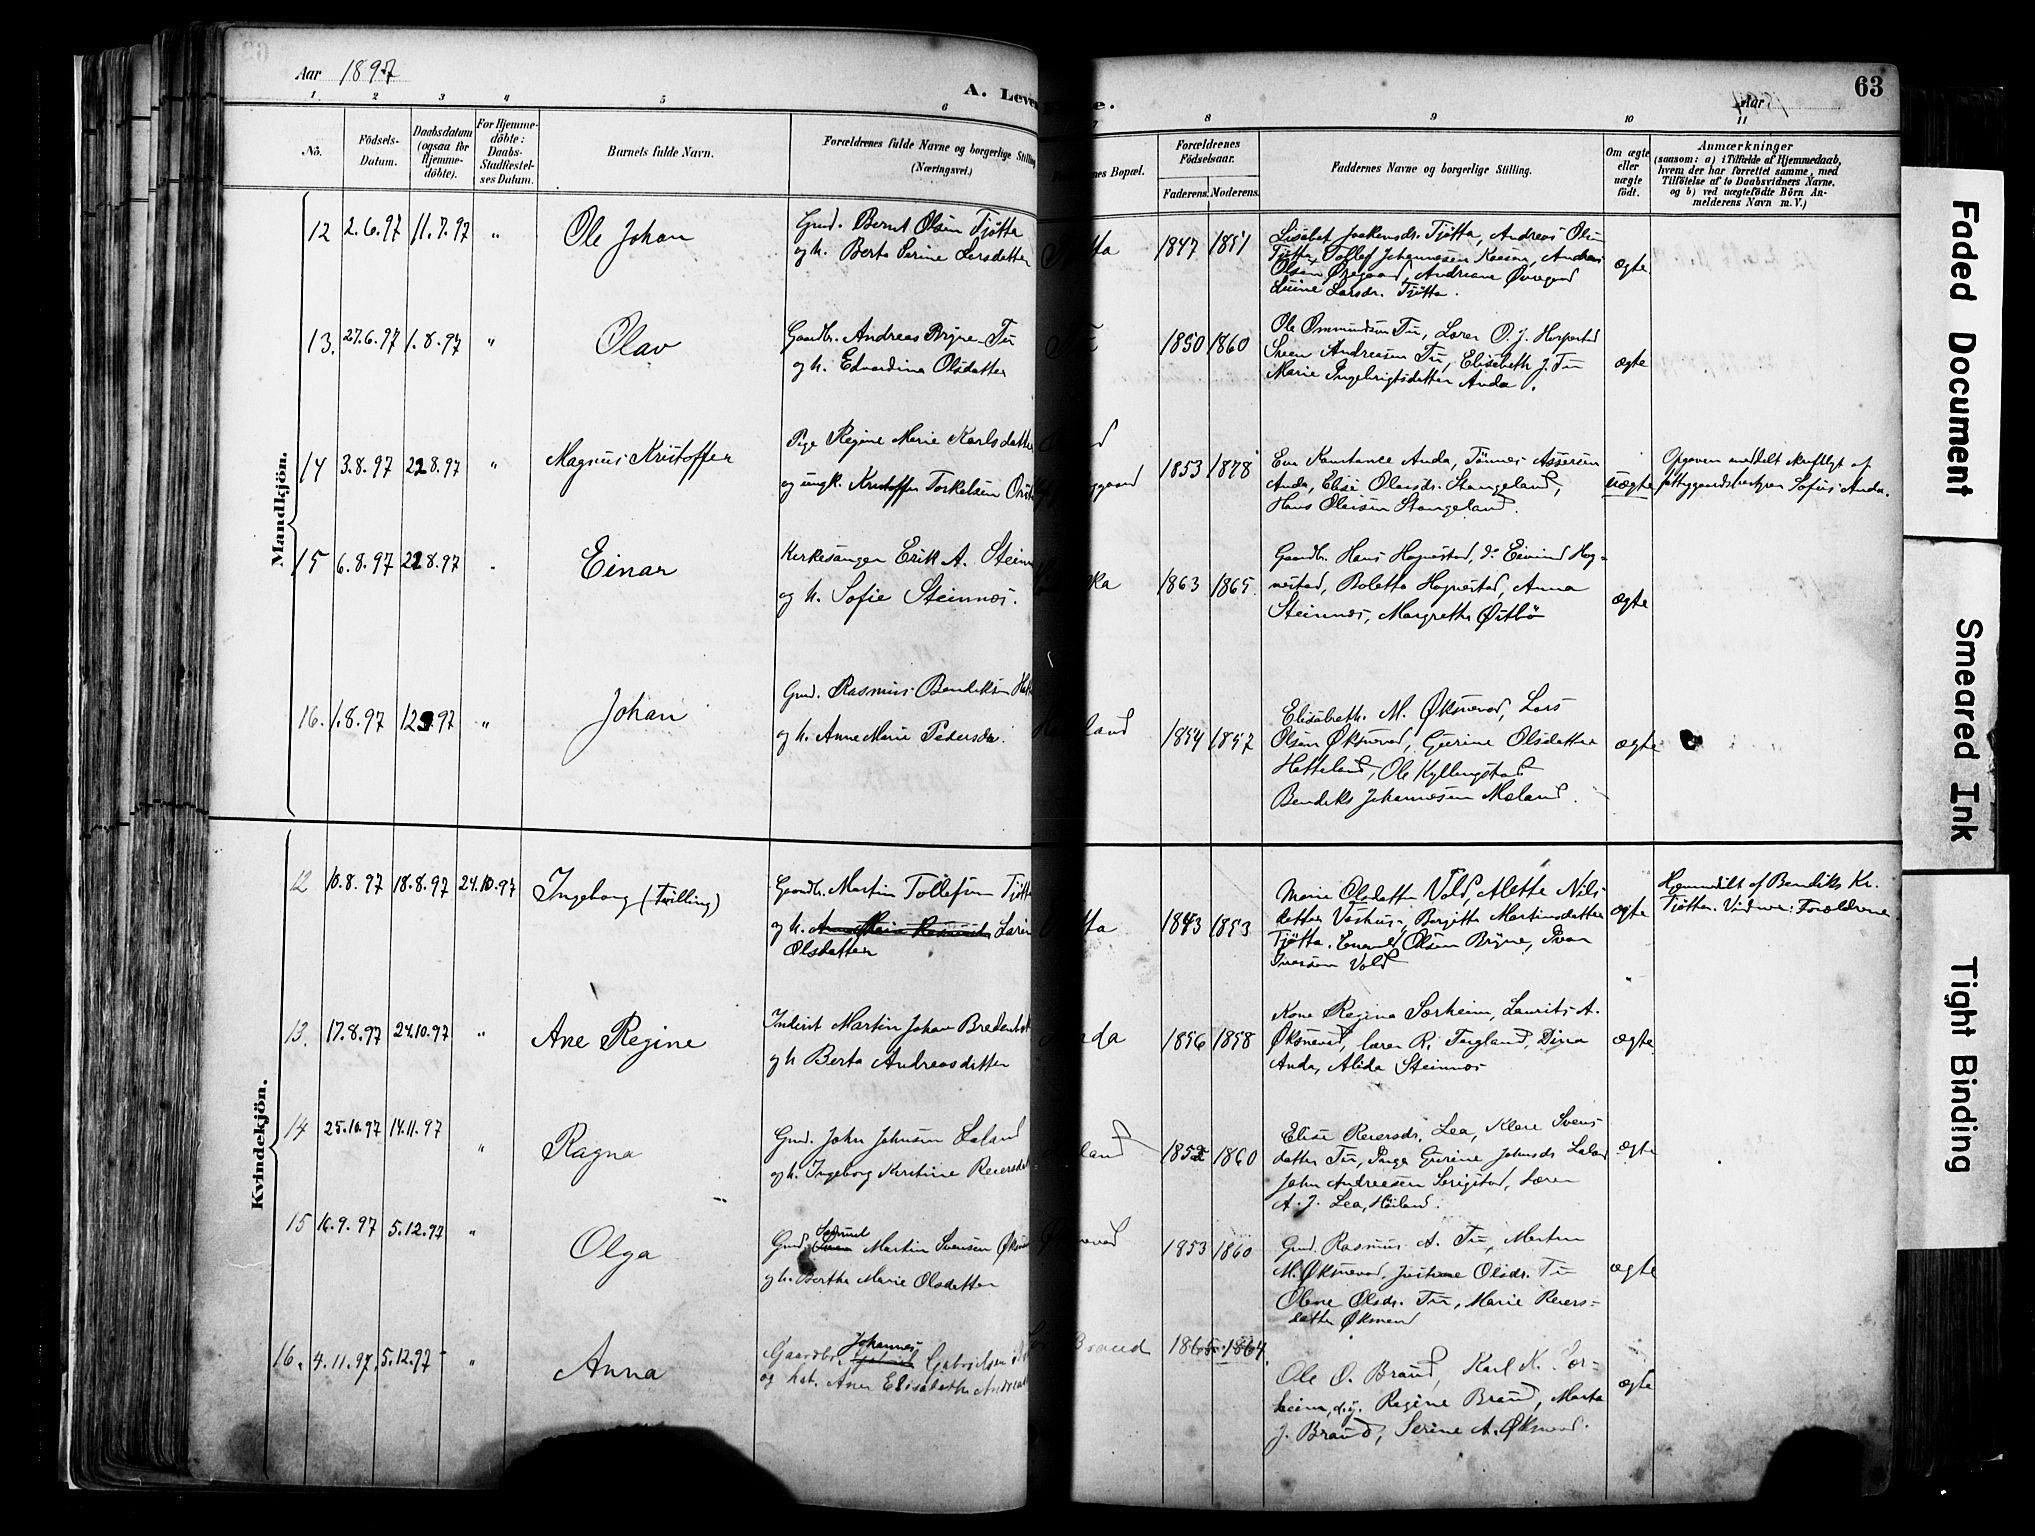 Aar 1897
A. Leve
e.
Aar 1897
63
1 2 3 4 5 6 7 8 9 10 11
No.
Födsels-Datum.
Daabsdatum (ogsaa for Hjemme-döbte).
For Hjemme-döbte: Daabs-Stadfæstel-ses Datum.
Barnets fulde Navn.
Forældrenes fulde Navne og borgerlige Stilling (Næringsvei.)
nes Bopæl.
Forældrenes Födselsaar.
Faderens. Moderens.
Faddernes Navne og borgerlige Stilling.
Om ægte eller uægte födt.
Anmærkninger
(saasom: a) i Tilfælde af Hjemmedaab, hvem der har forrettet samme, med Tilföielse af to Daabsvidners Navne, og b) ved uægtefödte Börn An-melderens Navn m. V.)
Mandkjön.
12 2.6.97 11.7.97 " Ole Johan
Gmd. Bernt Olsen Tjøtta
og h. Berta Serine Larsdatter
tta 1847 1851
Lisabet Joakimsdr. Tjøtta, Andreas Olsen
Tjøtta, Tollef Johannesen Kaasen, Andreas
Olsen Øregaard, Andriane Øvregaard
Larsdr. Tjøtta.
ægte
13. 27.6.97 1.8.97 " Olav
Gaardbr. Andreas Bryne Tu
og h. Edvardina Olsdatter
Tu 1850 1860
Ole Ommundsen Tu, Lærer O. J. Horpestad
Sveen Andreasen Tu, Elisabeth J. Tu
Marie Ingebrigtsdatter Anda.
ægte
14 3.8.97 22.8.97 " Magnus Kristoffer
Pige Regine Marie Karlsdatter
og ungk. Kristoffer Torkelsen
gaard 1853 1878
Eva Konstance Anda, Tønnes Assersen
Anda, Elise Olausdr. Stangeland,
Hans Olaisen Stangeland.
uægte
Opgaven meddelt skriftligt af
fattiggaardsbestyrer Sofus Anda.
15 6.8.97 22.8.97 " Einar
Kirkesanger Erik A. Steinn
og h. Sofie Steinnes.
ka 1863 1865
Gaardbr. Hans Hognestad, do Eivind Hog-
nestad, Boletta Hognestad, Anna
Steinnes, Margrethe Østbø
ægte
16. 1.8.97 12.9.97 " Johan
Gmd. Rasmus Bendiksen
og h. Anne Marie Pedersdr.
land 1854 1857
Elisabeth M. Øksnevad, Lars
Olsen Øksnevad, Gurine Olsdatter
Hatteland, Ole Kyllingstad
Bendiks Johannesen Meland.
ægte
Kvindekjön.
12 10.8.97 18.8.97 24.10.97 Ingeborg (Tvilling)
Gaardbr. Martin Tollefsen Tjøtt
og h. Anne Maria Rasmusdr Laren
Olsdatter
tta 1843 1853
Marie Olsdatter Vold, Alette Nils-
datter Vashus, Bergitte Martinsdatter
Tjøtta, Enevald Olsen Bryne, Ivar
Iversen Vold
ægte
Hjemmedøbt af Bendiks Kr.
Tjøtta. Vidner: Forældrene
13. 17.8.97 24.10.97 " Ane Regine
Inderst Martin Johan
og h Berta Andreasdatter
nda 1856 1858
Kone Regina Sørheim, Laurits A.
Øksnevad, lærer R. Fugland, Dina
Anda, Alida Steinnes
ægte
14 25.10.97 14.11.97 " Ragna
Gmd. John Johnsen Laland
og h. Ingeborg Kirstine Reiersdat
land 1852 1860
Elise Reiersdr. Lea, Klare Svens
datter Tu, Pige Gurine Johnsdr Laland
John Andreasen Serigstad, Lærer
A. J. Lea, Høiland.
ægte
15 16.9.97 5.12.97 " Olga
Gmd. Samuel Martin Svensen
og h. Berthe Marie Olsdatter
vad 1853 1860
Gmd. Rasmus A. Tu, Morten
M. Øksnevad, Justine Olsdr. Tu
Olene Olsdr. Tu, Marie Reiers-
datter Øksnevad
ægte
16. 4.11.97 5.12.97 " Anna
Gaardbr. Johannes Gabriel Gabrielsen
og hst. Ane Elisabethe Andreas
Braud 1865 1864.
Ole O. Braud, Karl K. Sør-
heim, d.y. Regine Braud, Marta
J. Braud, Serine A. Øksnevad.
ægte
Faded Document
Smeared Ink
Tight Binding